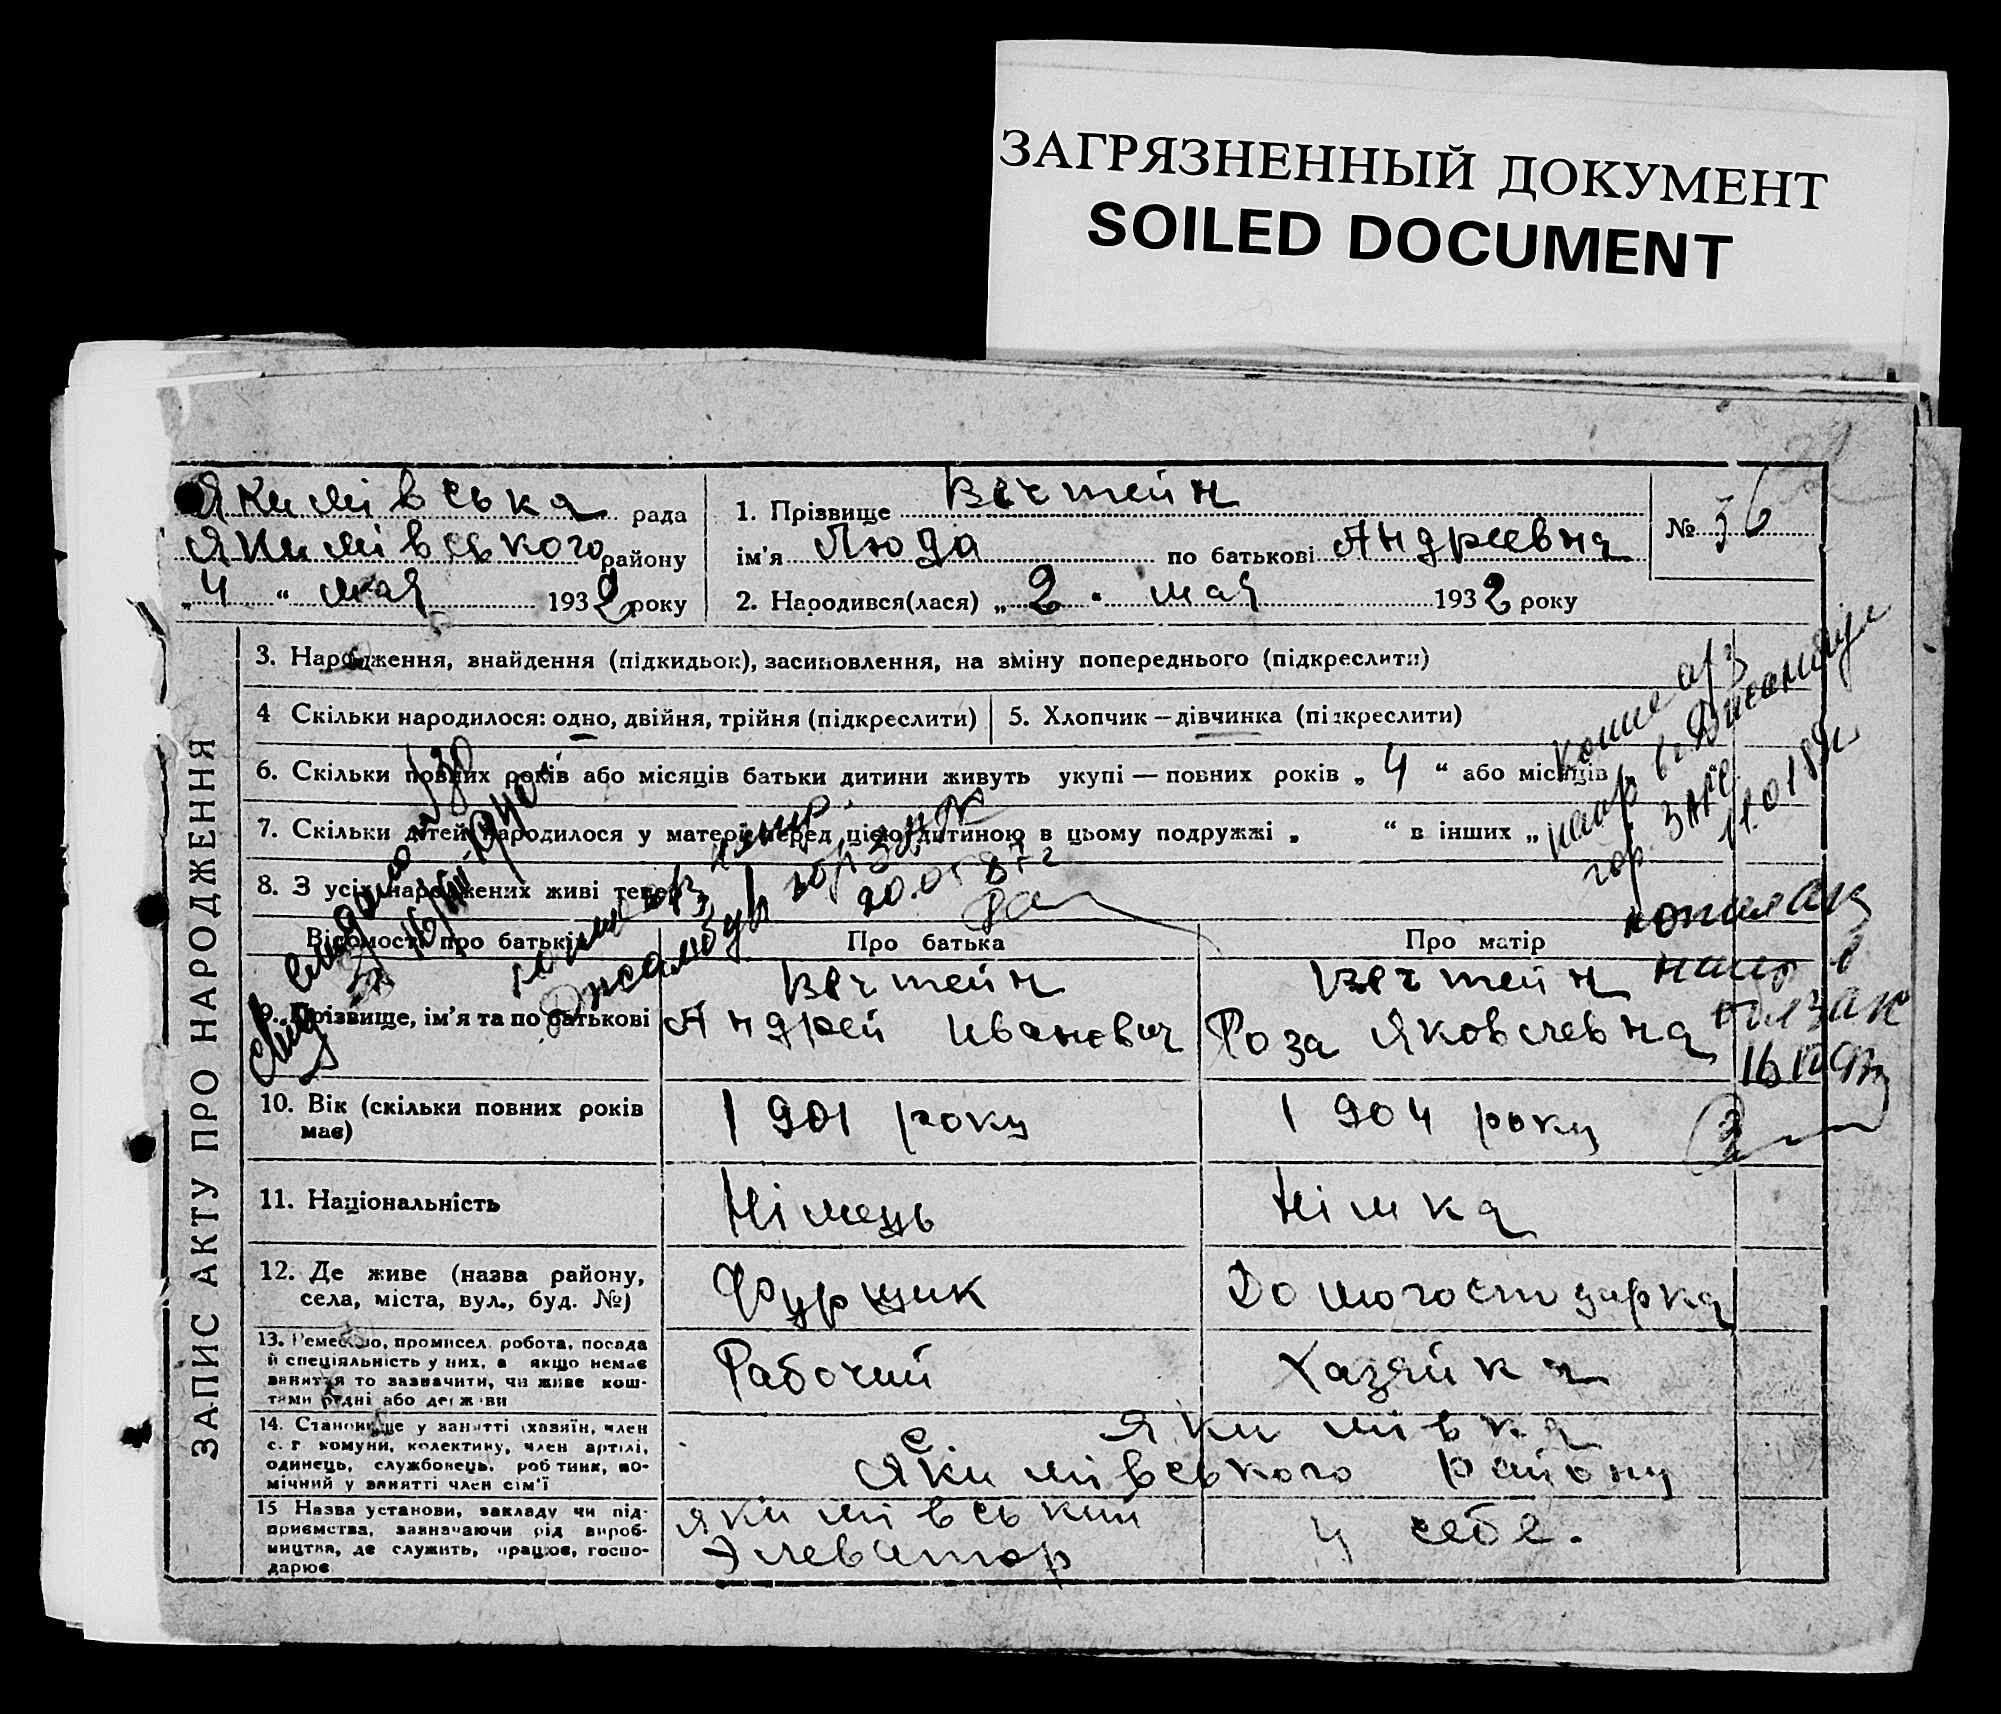 ЗАГРЯЗНЕННЫЙ ДОКУМЕНТ
SOILED DOCUMENT
Якимівська рада
Якимівського району
„4“ мая 1932 року
1. Прізвище Вечтейн
ім'я Люда по батькові Андреевна
2. Народився(лася) „2“ мая 1932 року
№ 56
ЗАПИС АКТУ ПРО НАРОДЖЕННЯ
3. Народження, знайдення (підкидьок), засиновлення, на зміну попереднього (підкреслити)
4 Скільки народилося: одно, двійня, трійня (підкреслити)
5. Хлопчик — дівчинка (підкреслити)
6. Скільки повних років або місяців батьки дитини живуть укупі — повних років „4“ або місяців
7. Скільки дітей народилося у матері перед цією дитиною в цьому подружжі „ “ в інших „
8. З усіх народжених живі тепер
20.05 87 г
ЗАГС
11.01 89г
Відомості про батьків
Про батька
Про матір
9. Прізвище, ім'я та по батькові
Вечтейн
Андрей Иванович
Вечтейн
Роза Яковлевна
10. Вік (скільки повних років
має)
1901 року
1904 року
11. Національність
Німець
Німка
12. Де живе (назва району,
села, міста, вул., буд. №)
Фурщик
Домогосподарка
13. Ремесло, промисел, робота, посада
й спеціяльність у них, а якщо немає
заняття то зазначити, чи живе кош-
тами рідні або держави
Рабочий
Хазяйка
14. Становище у занятті (хазяїн, член
с. г комуни, колективу, член артілі,
одинець, службонець, робітник, по-
мічний у занятті член сім'ї
с. Якимівка
Якимівського району
15 Назва установи, закладу чи під-
приємства, зазначаючи рід вироб-
ництва, де служить, працює, госпо-
дарює
Якимівський
Элеватор
у себе.